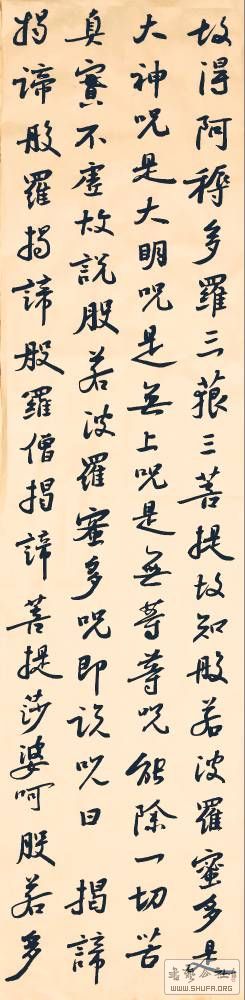 故得阿耨多羅三藐三菩提故知般若波羅蜜多是
大神呪是大明呪是無上呪是無等等呪能除一切苦
真實不虛故說般若波羅蜜多呪即說呪曰 揭諦
揭諦般羅揭諦般羅僧揭諦菩提莎婆呵般若多
WWW.SHUFA.ORG